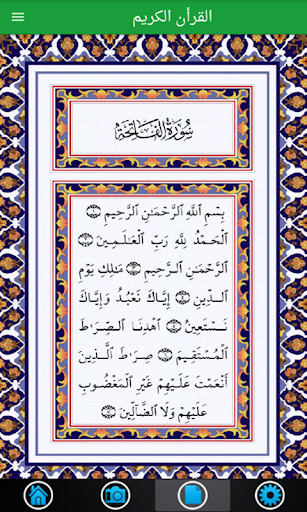 القرأن الكريم
سُورَةُ الفَاتِحَةِ
بِسْمِ ٱللَّهِ ٱلرَّحْمَٰنِ ٱلرَّحِيمِ ۝
ٱلْحَمْدُ لِلَّهِ رَبِّ ٱلْعَٰلَمِينَ ۝
ٱلرَّحْمَٰنِ ٱلرَّحِيمِ ۝ مَٰلِكِ يَوْمِ
ٱلدِّينِ ۝ إِيَّاكَ نَعْبُدُ وَإِيَّاكَ
نَسْتَعِينُ ۝ ٱهْدِنَا ٱلصِّرَٰطَ
ٱلْمُسْتَقِيمَ ۝ صِرَٰطَ ٱلَّذِينَ
أَنْعَمْتَ عَلَيْهِمْ غَيْرِ ٱلْمَغْضُوبِ
عَلَيْهِمْ وَلَا ٱلضَّآلِّينَ ۝